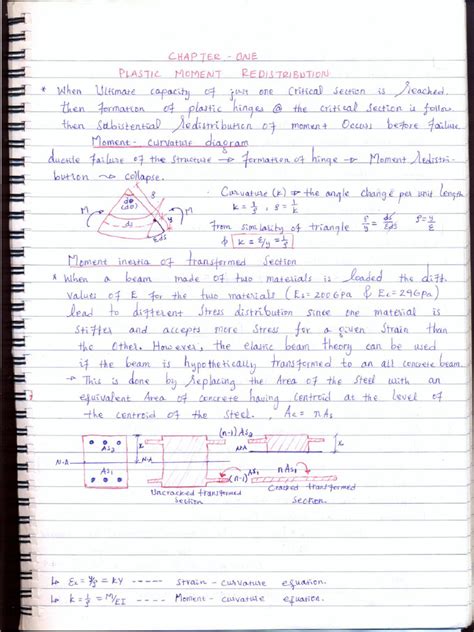 CHAPTER - ONE
PLASTIC MOMENT REDISTRIBUTION
* When Ultimate capacity of just one Critical section is reached,
then formation of plastic hinges @ the critical section is follow
then Substential redistribution of moment Occurs before failure.
Moment - curvature diagram
ductile failure of the structure → formation of hinge → Moment redistri-
bution → collapse.
· Curvature (k) → the angle change per unit length
k = 1/ρ , ρ = 1/k
dθ
(dθ)
ρ
M
M
ds
y
From similarity of triangle ρ/y = ds/εds ρ = y/ε
k = ε/y = 1/ρ
Moment inertia of transformed section
* When a beam made of two materials is loaded the diff.
values of E for the two materials (Es = 200GPa & Ec = 29GPa)
lead to different stress distribution since one material is
Stiffer and accepts more Stress for a given Strain than
the Other. However, the elastic beam theory can be used
if the beam is hypothetically transformed to an all concrete beam.
→ This is done by replacing the Area of the Steel with an
equivalent Area of concrete having centroid at the level of
the centroid of the Steel. Ac = nAs
As2
As1
N-A
(n-1) As2
x
N-A
(n-1) As1
Uncracked transformed
section
x
N-A
nAs
Cracked transformed
section.
εc = y/ρ = ky ----- strain - curvature equation.
k = 1/ρ = M/EI ----- Moment - curvature equation.